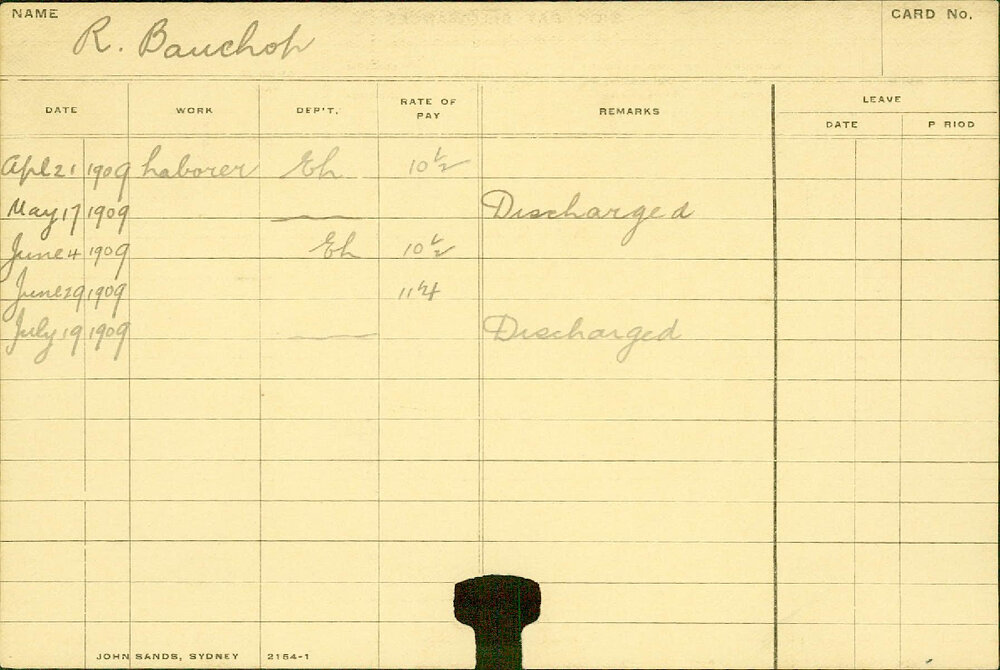 NAME R. Bauchop CARD No.
DATE WORK DEP'T. RATE OF PAY REMARKS LEAVE
DATE P RIOD
Apl 21 1909 Laborer Eh 10½
May 17 1909 Discharged
June 4 1909 Eh 10½
June 29 1909 11¼
July 19 1909 Discharged
JOHN SANDS, SYDNEY 2154-1